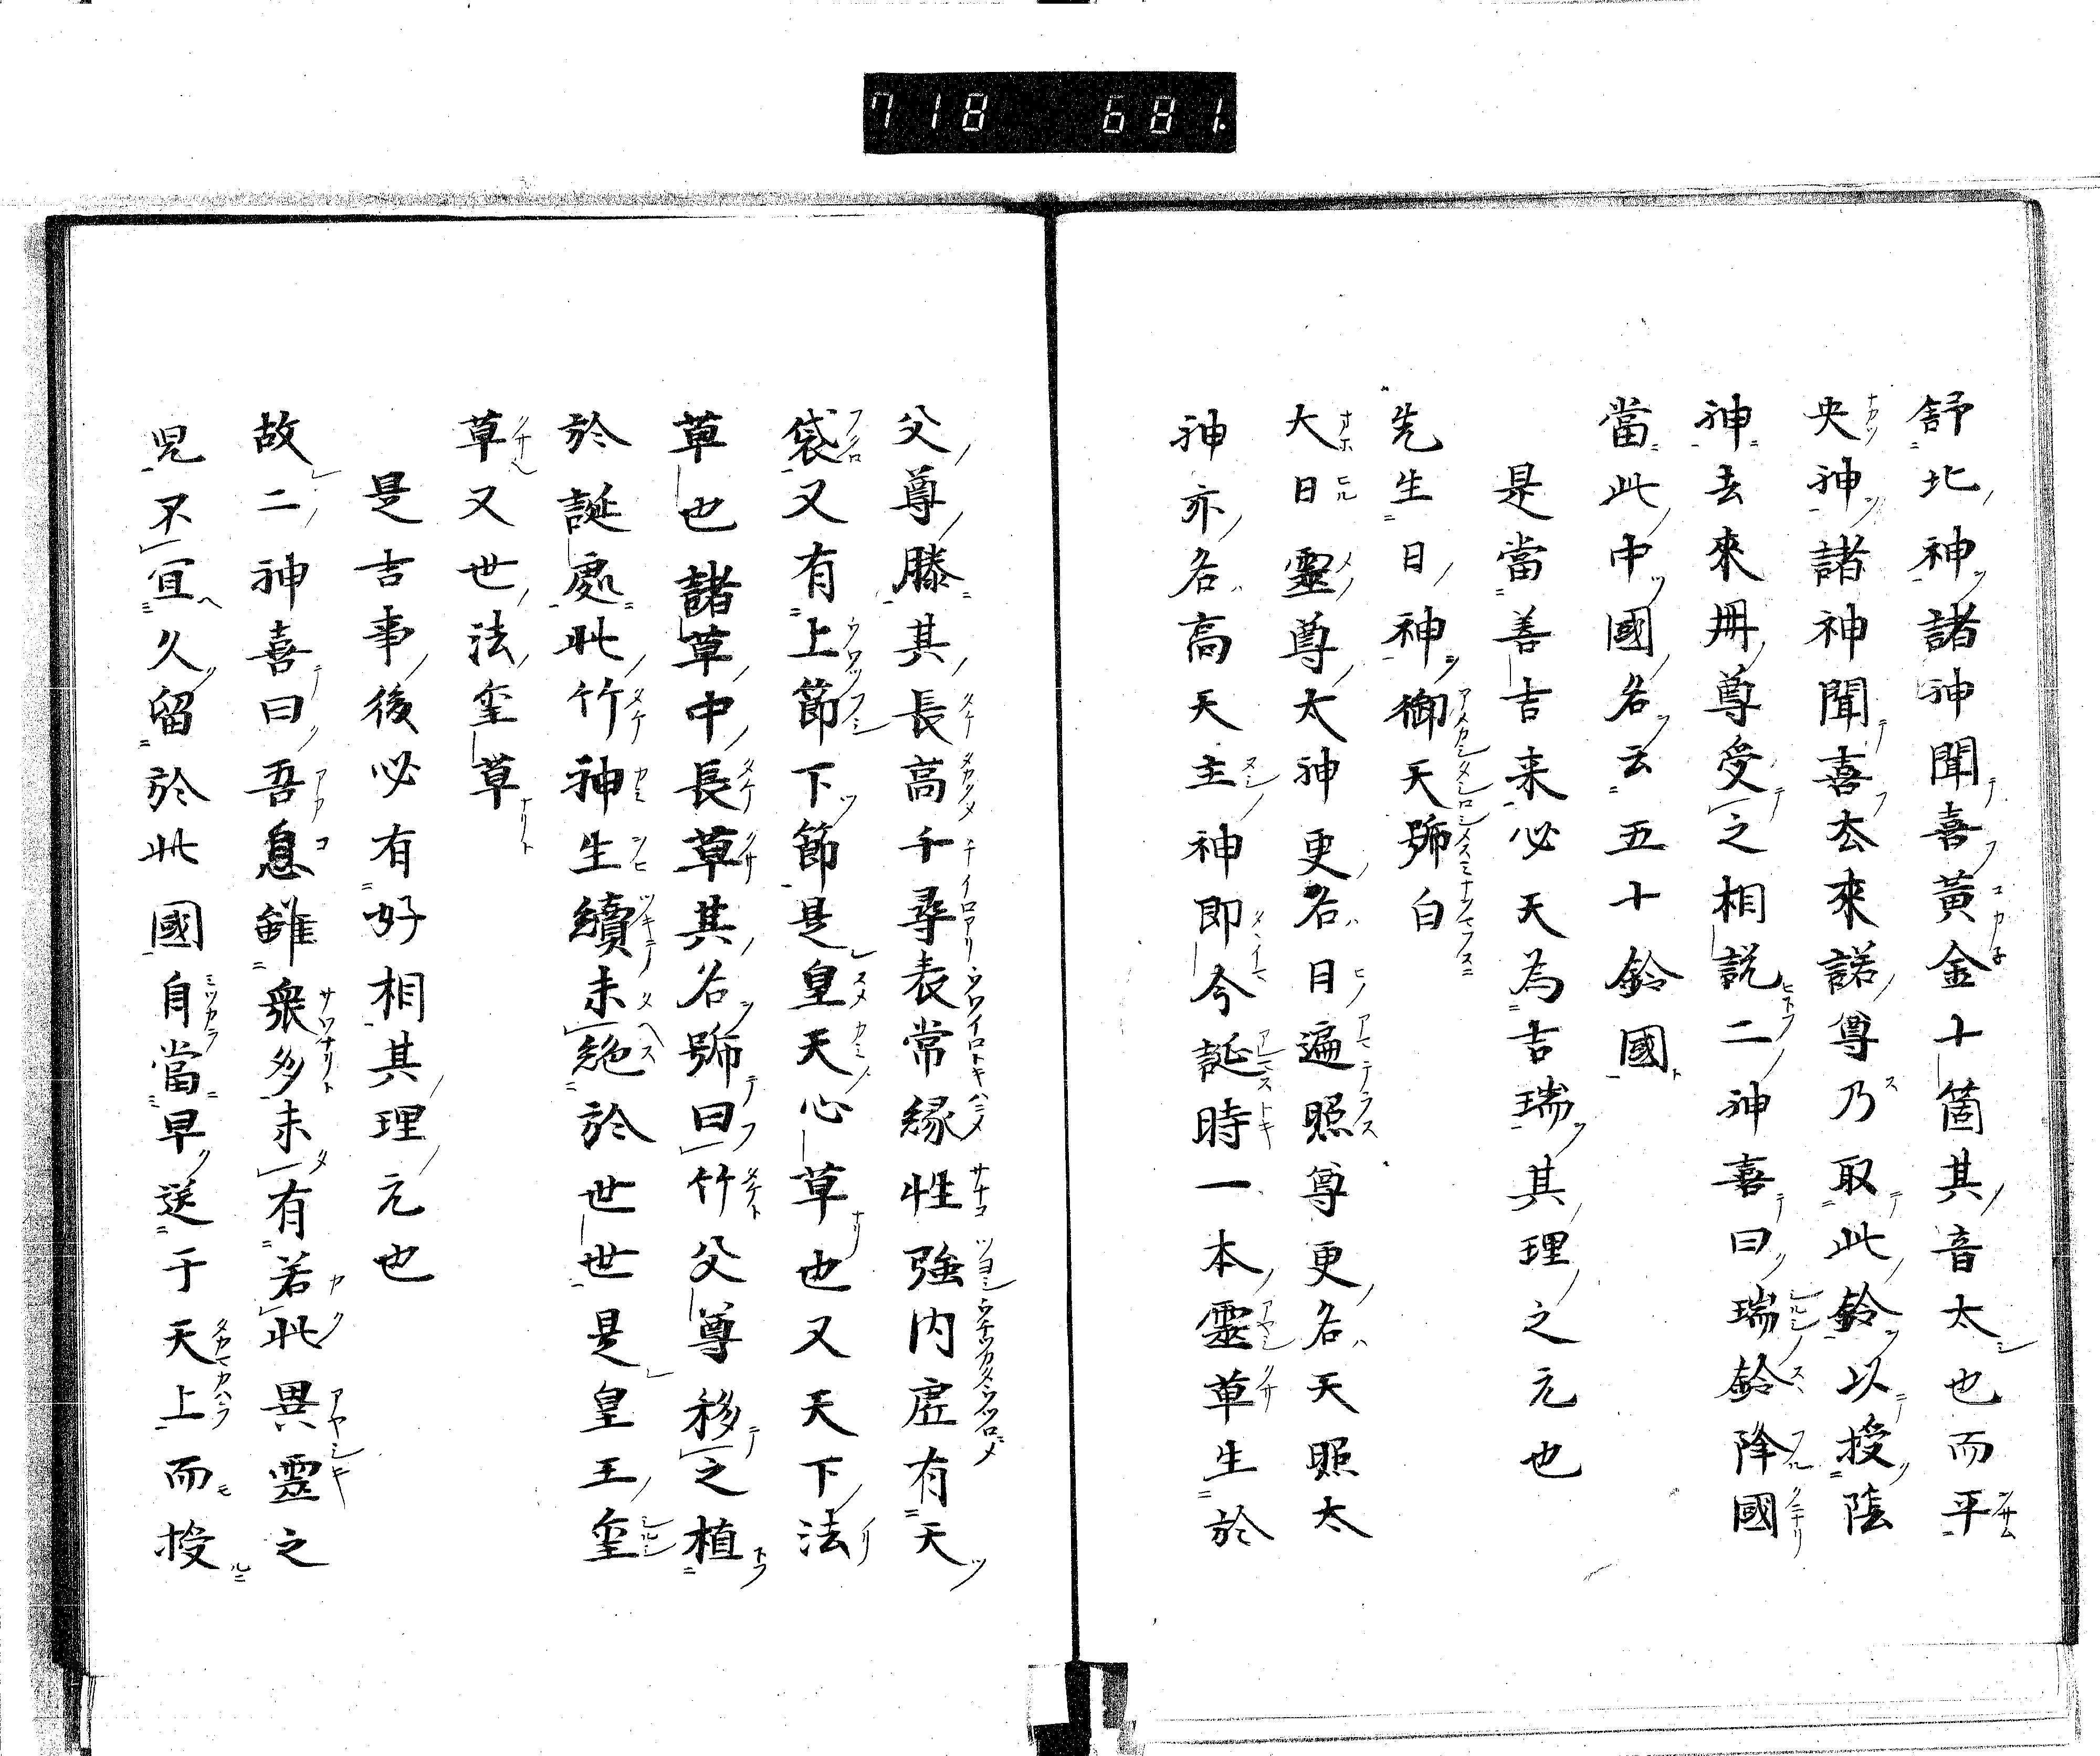 718 681.
舒北神諸神聞喜黃金十箇其音太也而平
央神諸神聞喜去來諾尊乃取此鈴以授陰
神去來冊尊受之相説二神喜曰瑞鈴降國
當此中國名云五十鈴國
是當善吉来必天為吉瑞其理之元也
先生日神御天號白
大日靈尊太神更名日遍照尊更名天照太
神亦名高天主神即今誕時一本靈草生於
父尊滕其長高千尋表常緣性強内虚有天
袋又有上節下節是皇天心草也又天下法
草也諸草中長草其名號曰竹父尊移之植
於誕處此竹神生續未絶於世世是皇王璽
草又世法璽草
是吉事後必有好相其理元也
故二神喜曰吾息雖衆多未有若此異靈之
児不宜久留於此國自當早送于天上而授